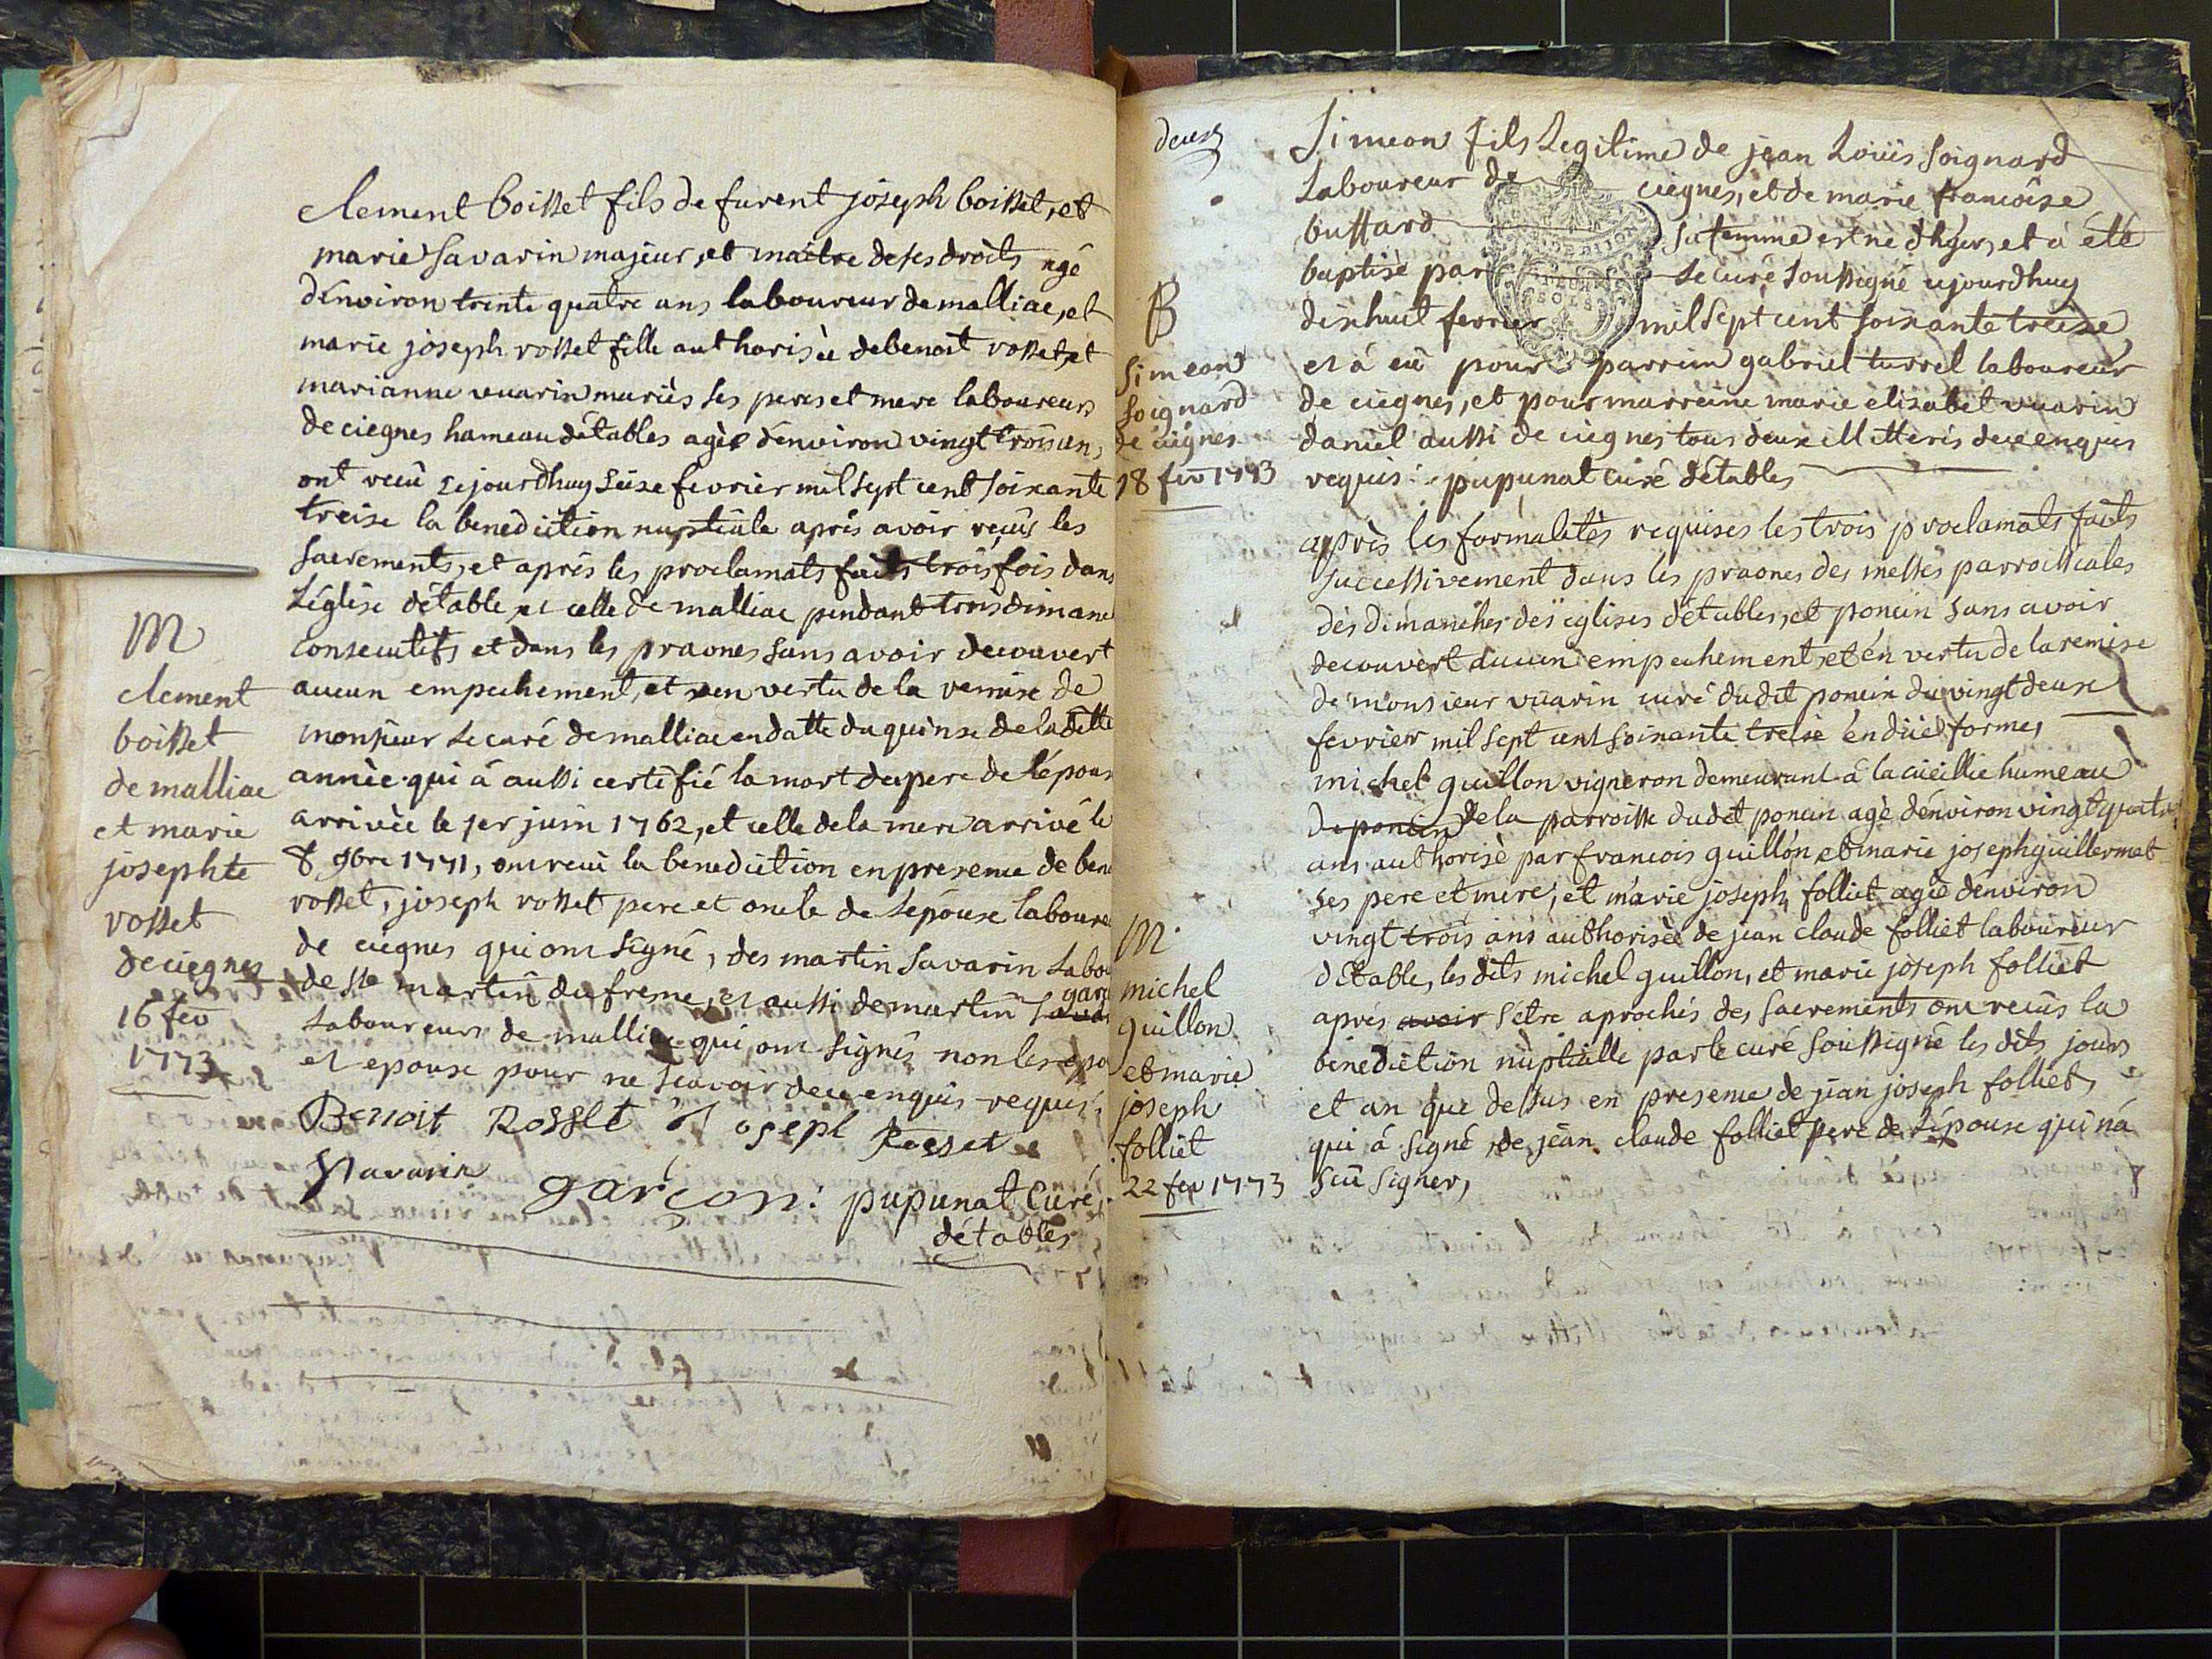 clement boisset fils de furent joseph boisset, et
marie savarin majeur, et maitre de ses droits agé
dénviron trente quatre ans laboureur de malliac, et
marie joseph rosset fille authorisèe de benoit rosset, et
marianne vuarin mariés ses peres et mere laboureurs
de ciegnes hameau détables agèe dénviron vingt trois ans,
ont recû cejourdhuy seise fevrier mil sept cent soixante
treise la benediction nuptiale aprés avoir reçûs les
sacrements, et aprés les proclamats faits trois fois dans
Léglise détable et celle de malliac pendant trois dimanc
consecutifs et dans les praones sans avoir decouvert
aucun empechement, et en vertu de la remise de
monsieur le curé de malliac en datte du quinse de la ditte
annèe qui â aussi certifié la mort du pere de lépoux
arrivèe le 1er juin 1762, et celle de la mere arrivé le
8 9bre 1771, ont recû la benediction en presence de ben
rosset, joseph rosset pere et oncle de lépouse laboure
de ciegnes qui ont signé, des martin savarin labou
de st martin du fresne, et aussi de martin garç
laboureurs de malliac qui ont signés non les epo
et epouse pour ne scavoir de ce enquis requis.
Benoit Rosset Joseph Rosset
Savarin garçon: pupunat Curé
détables
M
clement
boisset
de malliac
et marie
josephte
rosset
de ciegnes
16 fev
1773
deux
Simeon fils Legitime de jean Loüis soignard
Laboureur de ciegnes, et de marie francoise
buttard sa femme est né d'hyer, et â été
baptisé par le curé soussigné ajourdhuy
dixhuit fevrier mil sept cent soixante treise
et â eû pour parrain gabriel turrel laboureur
de ciegnes, et pour marreine marie elisabet vuarin
daniel aussi de ciegnes tous deux illitterés de ce enquis
requis. pupunat curé détables
B
simeon
soignard
de ciegnes
18 fev 1773
après les formalités requises les trois proclamats faits
successivement dans les praones des messes parroissiales
dés dimanches des eglises détables, et poncin sans avoir
decouvert aucun empechement, et én vertu de la remise
de monsieur vuarin curé dudit poncin du vingt deux
fevrier mil sept cent soixante treise én düe formes
michel guillon vigneron demeurant â la cueillie hameau
de poncin de la parroisse dudit poncin agé dénviron vingt quatre
ans authorisè par francois guillon, et marie joseph guillermet
ses pere et mere, et marie joseph folliet agèe dénviron
vingt trois ans authorisèe de jean claude folliet laboureur
détable, les dits michel guillon, et marie joseph folliet
aprés avoir sétre aprochés des sacrements ont recûs la
benediction nuptialle par le curé soussigné les dits jours
et an que dessus en presence de jean joseph folliet,
qui â signé, de jean claude folliet pere de lépouse qui ná
scû signer,
M
michel
guillon
et marie
joseph
folliet
22 fev 1773